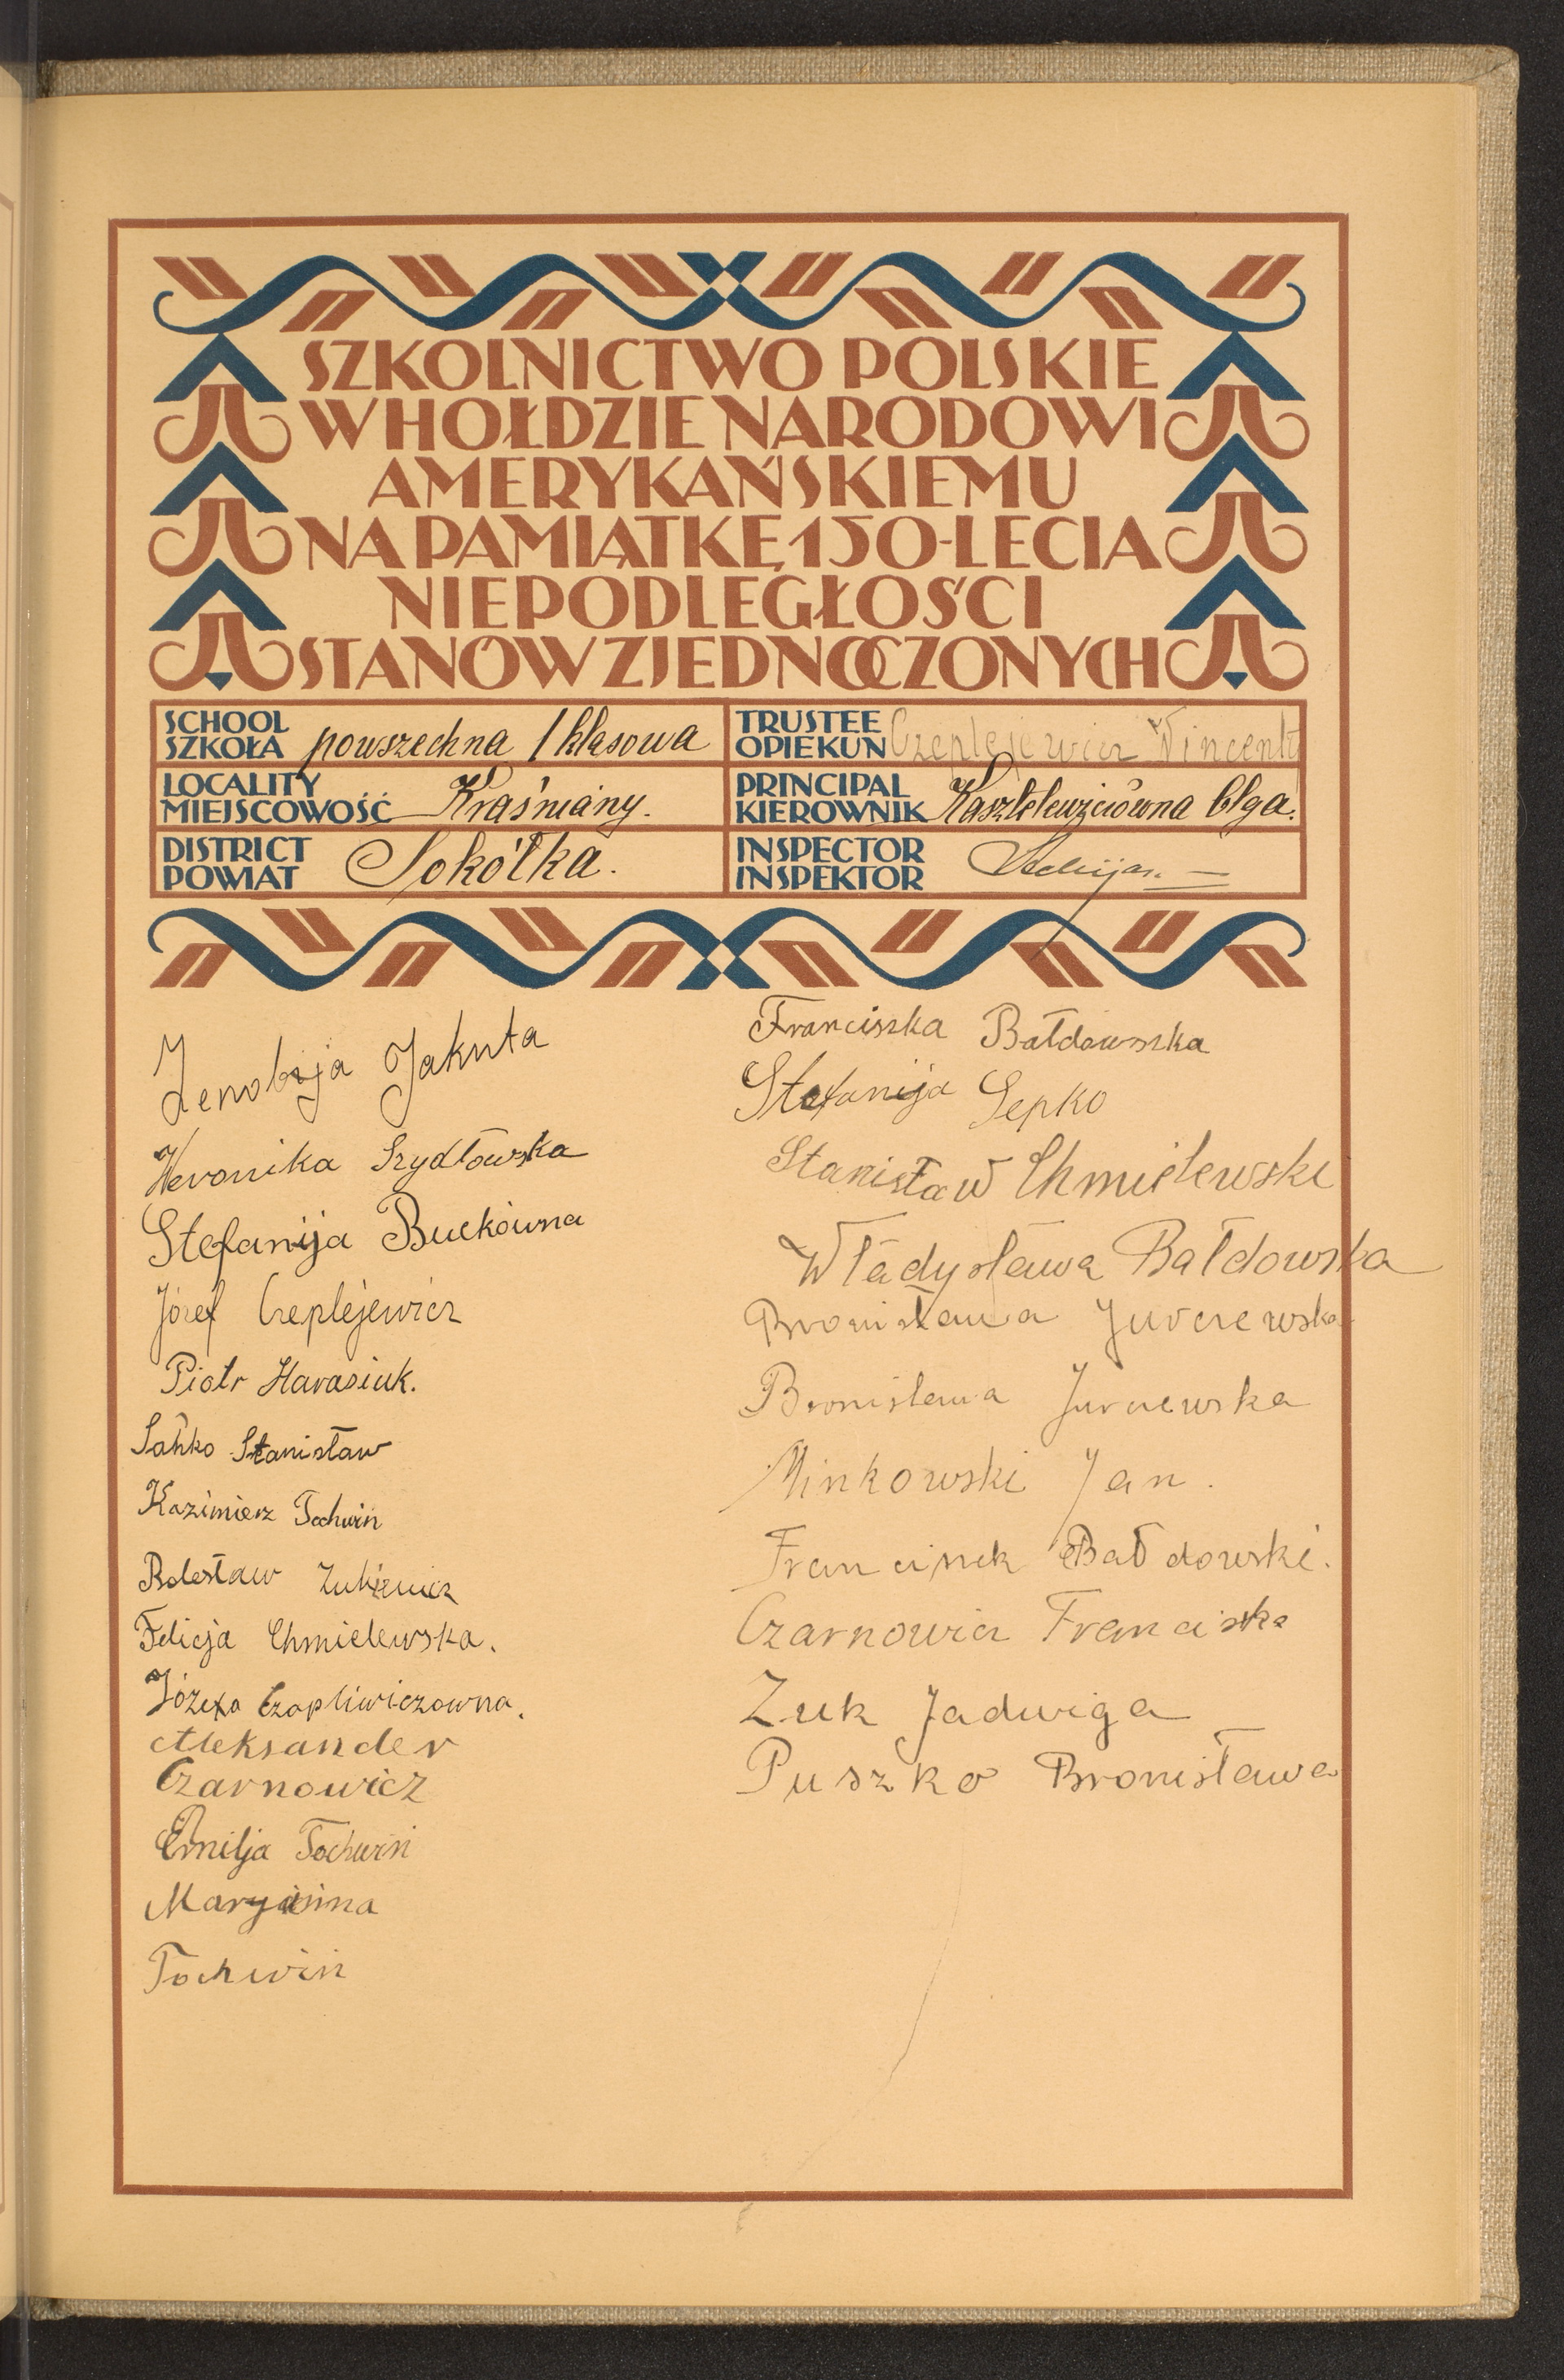 SZKOLNICTWO POLSKIE
W HOŁDZIE NARODOWI
AMERYKAŃSKIEMU
NA PAMIĄTKĘ 150-LECIA
NIEPODLEGŁOŚCI
STANÓW ZJEDNOCZONYCH
SCHOOL
SZKOŁA powszechna 1 klasowa
TRUSTEE
OPIEKUN Czeplejewicz Wincenty
LOCALITY
MIEJSCOWOŚĆ Kraśniany.
PRINCIPAL
KIEROWNIK Olga.
DISTRICT
POWIAT Sokółka.
INSPECTOR
INSPEKTOR
Zenobija Jakuta
Weronika Szydłowska
Stefanija Buckówna
Józef Czeplejewicz
Piotr Harasiuk.
Sańko Stanisław
Kazimierz Tochwin
Bolesław Zukiewicz
Felicja Chmielewska.
Józefa Czapliwiczowna.
Aleksander
Czarnowicz
Emilja Tochwin
Maryanna
Tochwin
Franciszka Bałdowszka
Stefanija Sepko
Stanisław Chmielewski
Władysława Bałdowska
Bronisława Jurczewska
Bronisława Jurczewska
Minkowski Jan.
Franciszek Bałdowski.
Czarnowicz Franciszka
Zuk Jadwiga
Puszko Bronisława